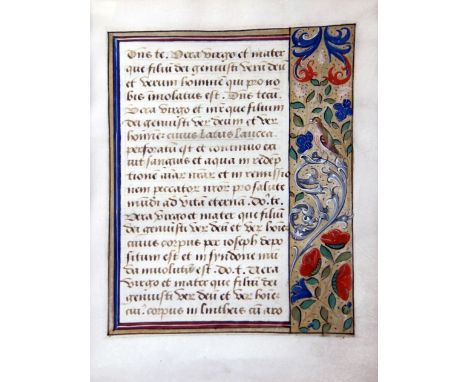 Dn̄s te. Vera virgo et mater
que filiū dei genuisti verū deū
et verum hominē qui pro no
bis imolatus est. Dn̄s tecū.
Vera virgo et mr̄ que filium
dei genuisti ver deum et ver
hominē: cuius latus lancea
perforatum est et continuo exi
uit sanguis et aqua in redēp
tionē aīar nrār et in remissio
nem peccator nr̄or pro salute
mūdi ad vitā eternā. Do. te.
Vera virgo et mater que filiū
dei genuisti ver deū et ver hoīē
cuius corpus per ioseph depo
situm est et in syndone mū
da inuolutū est. Do. t. Vera
virgo et mater que filiū dei
genuisti ver deū et ver hoīē
cui9 corpus in lintheis cū aro